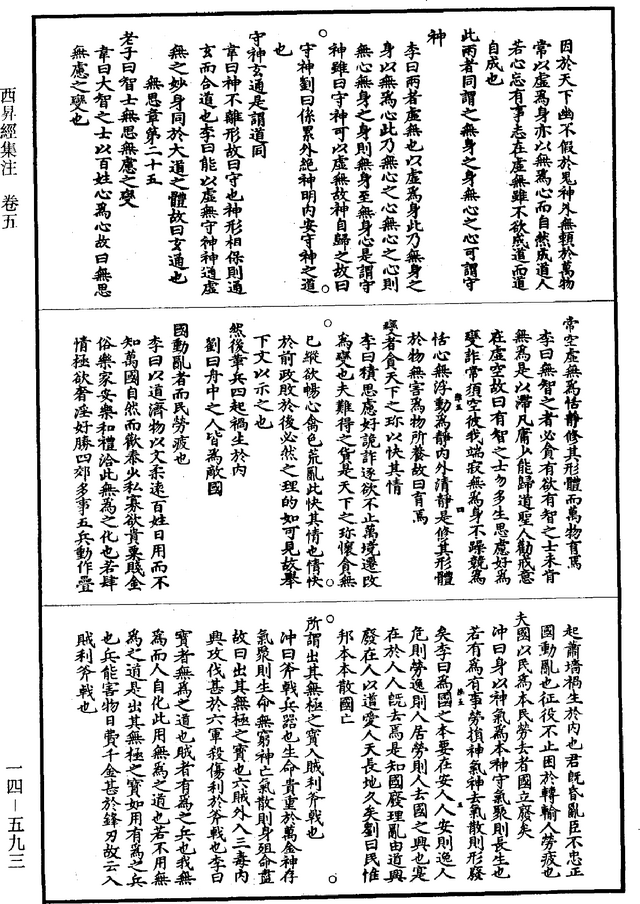 因於天下幽不假於鬼神外無賴於萬物
常以虛爲身亦以無爲心而自然成道人
若心忘有事志在虛無雖不欲成道而道
自成也
此兩者同謂之無身之身無心之心可謂守
神
李曰兩者虛無也以虛爲身此乃無身之
身以無爲心此乃無心之心無心之心則
無心無身之身則無身至無身心是謂守
神雖曰守神可以虛無故神自歸之故曰
守神劉曰係累外絕神明內安守神之道
也
守神玄通是謂道同
韋曰神不離形故曰守也神形相保則通
玄而合道也李曰能以虛無守神神通虛
無之妙身同於大道之體故曰玄通也
無思章第二十五
老子曰智士無思無慮之變
韋曰大智之士以百姓心爲心故曰無思
無慮之變也
常空虛無爲恬靜修其形體而萬物育焉
李曰無智之者必貪有欲有智之士未肯
無爲是以滯凡庸少能歸道聖人勸戒意
在虛空故曰有智之士勿多生思慮好爲
變詐常須空彼我端寂無爲身不躁競爲
恬心無浮動爲靜內外清靜是修其形體
於物無害爲物所養故曰育焉
變者貪天下之珎以快其情
李曰積思慮好詭詐逐欲不止萬境遷改
爲變也夫難得之貨是天下之珎懷貪無
已縱欲暢心禽色荒亂此快其情也情快
於前政敗於後必然之理的如可見故舉
下文以示之也
然後輩兵四起禍生於內
劉曰舟中之人皆爲敵國
國動亂者而民勞疲也
李曰以道濟物以文柔遠百姓日用而不
知萬國自然而歡泰少私寡欲貴粟賤金
俗樂家安樂和禮洽此無爲之化也若肆
情極欲奢淫好勝四郊多事五兵動作疊
起蕭墻禍生於內也君旣昏亂臣不忠正
國動亂也征役不止困於轉輸人勞疲也
夫國以民爲本民勞去者國立廢矣
沖曰身以神氣爲本神守氣聚則長生也
若有爲有事勞損神氣神去氣散則形廢
矣李曰爲國之本要在安人人安則逸人
危則勞逸則人居勞則人去國之興也寔
在於人人旣去焉是知國廢理亂由道興
廢在人以道愛人天長地久矣劉曰民惟
邦本本散國亡
所謂出其無極之寶入賊利斧戟也
沖曰斧戟兵器也生命貴重於萬金神存
氣聚則生命無窮神亡氣散則身殂命盡
故曰出其無極之寶也六賊外入三毒內
興攻伐甚於六軍殺傷利於斧戟也李曰
寶者無爲之道也賊者有爲之兵也我無
爲而人自化此用無爲之道也若不用無
爲之道是出其無極之寶如用有爲之兵
也兵能害物日費千金甚於鋒刃故云入
賊利斧戟也
西昇經集注　卷五
一四－五九三